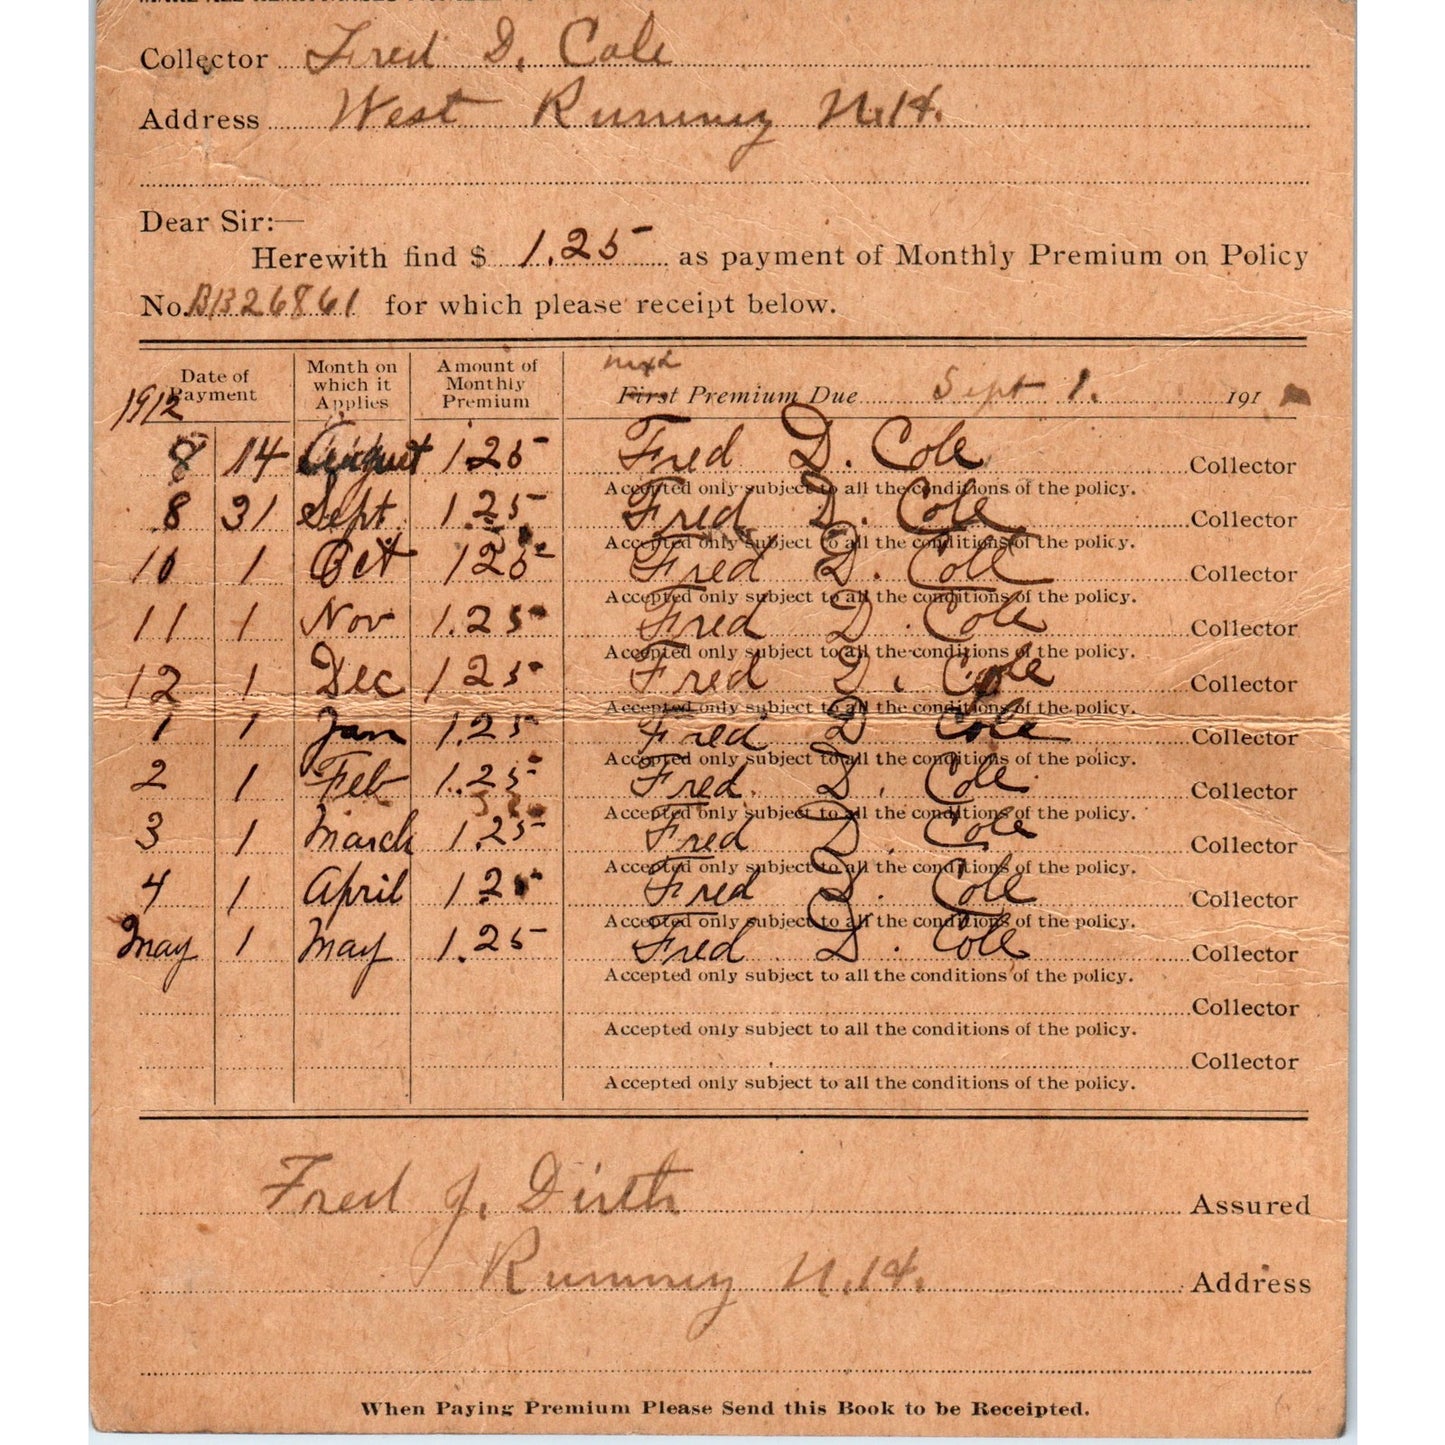 Collector Fred D. Cole
Address West Rumney N.H.
Dear Sir:—
Herewith find $ 1.25 as payment of Monthly Premium on Policy
No. BB26861 for which please receipt below.
Date of Payment Month on which it Applies Amount of Monthly Premium First Premium Due Sept 1. 191
1912
8 14 August 1 25 Fred D. Cole Collector
Accepted only subject to all the conditions of the policy.
8 31 Sept. 1.25 Fred D. Cole Collector
Accepted only subject to all the conditions of the policy.
10 1 Oct 1 25 Fred D. Cole Collector
Accepted only subject to all the conditions of the policy.
11 1 Nov 1.25 Fred D. Cole Collector
Accepted only subject to all the conditions of the policy.
12 1 Dec 1 25 Fred D. Cole Collector
Accepted only subject to all the conditions of the policy.
1 1 Jan 1.25 Fred D Cole Collector
Accepted only subject to all the conditions of the policy.
2 1 Feb 1.25 Fred. D. Cole Collector
Accepted only subject to all the conditions of the policy.
3 1 March 1.25 Fred D. Cole Collector
Accepted only subject to all the conditions of the policy.
4 1 April 1.25 Fred D. Cole Collector
Accepted only subject to all the conditions of the policy.
May 1 May 1.25 Fred D. Cole Collector
Accepted only subject to all the conditions of the policy.
Collector
Accepted only subject to all the conditions of the policy.
Collector
Accepted only subject to all the conditions of the policy.
Fred J. Dirth Assured
Rumney N.H. Address
When Paying Premium Please Send this Book to be Receipted.